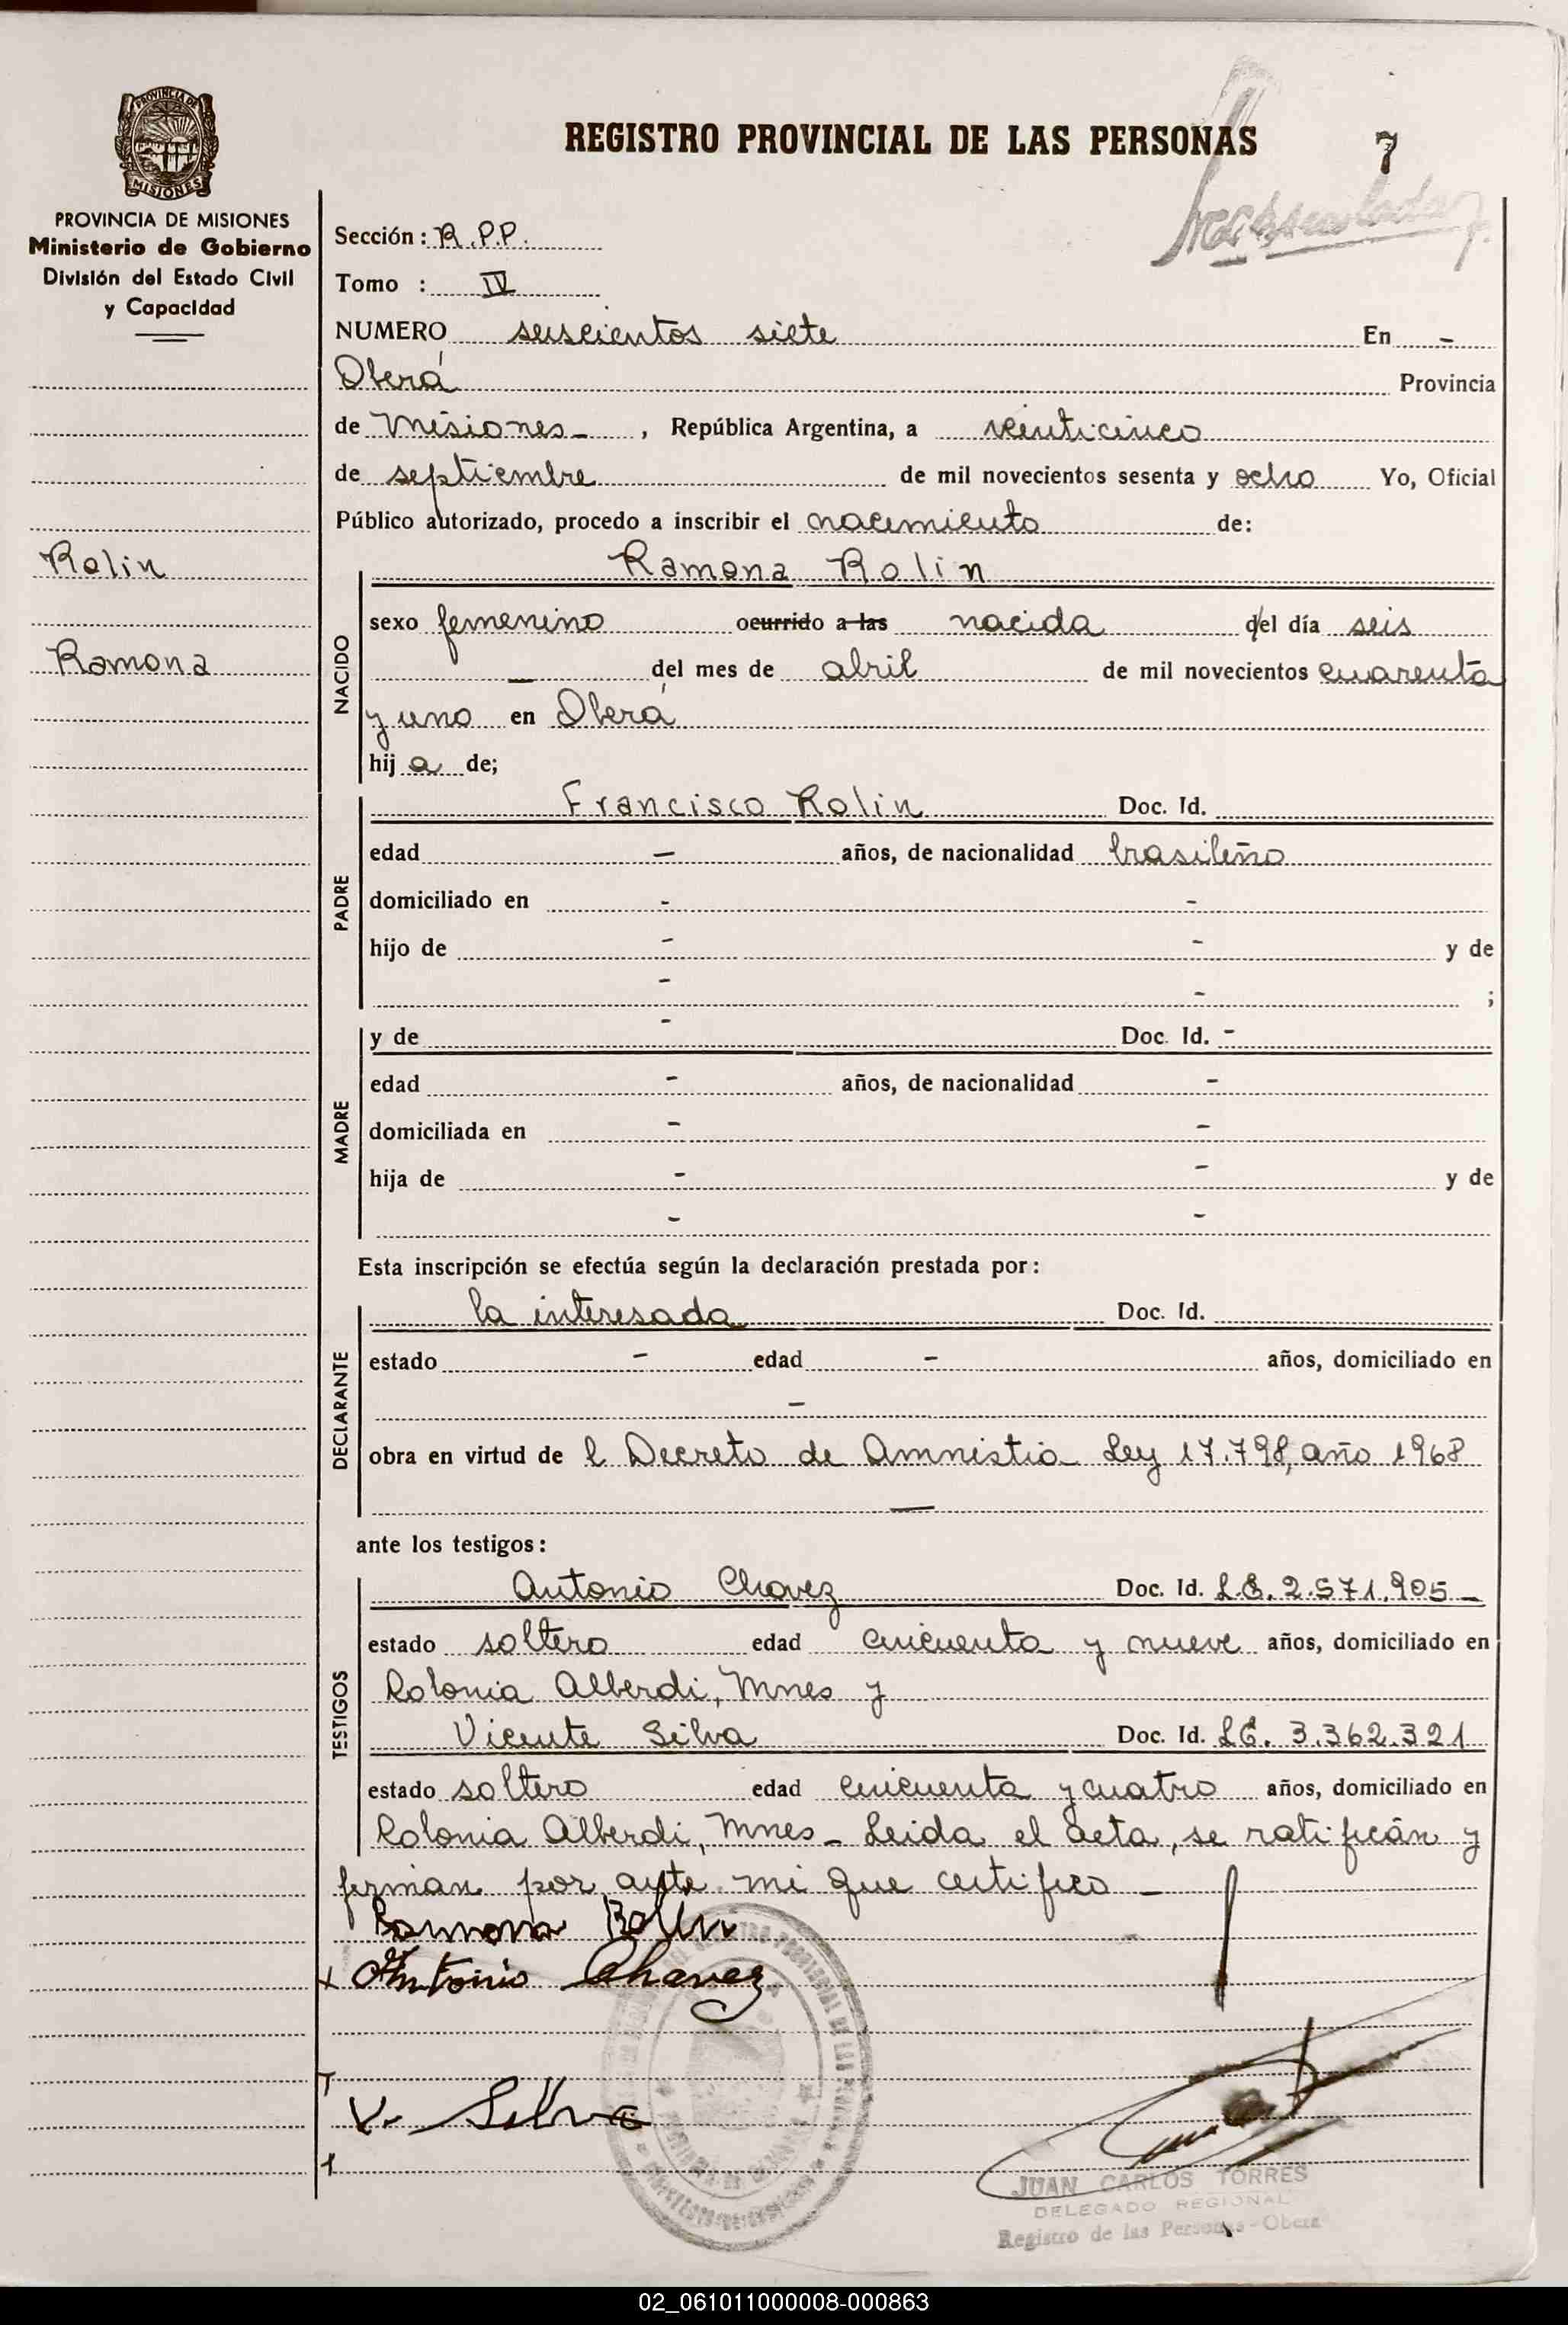 REGISTRO PROVINCIAL DE LAS PERSONAS
7
PROVINCIA DE
MISIONES
PROVINCIA DE MISIONES
Ministerio de Gobierno
División del Estado Civil
y Capacidad
Rolin
Ramona
Sección: R.P.P.
Tomo : IV
NUMERO seiscientos siete En -
Oberá Provincia
de Misiones - , República Argentina, a veinticinco
de septiembre de mil novecientos sesenta y ocho Yo, Oficial
Público autorizado, procedo a inscribir el nacimiento de:
Ramona Rolin
NACIDO
sexo femenino ocurrido a las nacida del día seis
— del mes de abril de mil novecientos cuarenta
y uno en Oberá
hij a de;
PADRE
Francisco Rolin Doc. Id.
edad — años, de nacionalidad brasileño
domiciliado en - -
hijo de - - y de
- - ;
MADRE
y de - Doc. Id. -
edad - años, de nacionalidad -
domiciliada en - -
hija de - - y de
- -
Esta inscripción se efectúa según la declaración prestada por:
DECLARANTE
la interesada Doc. Id.
estado - edad - años, domiciliado en
-
obra en virtud de l Decreto de Amnistia Ley 17.798, año 1968
—
ante los testigos:
TESTIGOS
Antonio Chavez Doc. Id. L.E. 2.571.905 -
estado soltero edad cincuenta y nueve años, domiciliado en
Colonia Alberdi, Mnes y
Vicente Silva Doc. Id. LE. 3.362.321
estado soltero edad cincuenta y cuatro años, domiciliado en
Colonia Alberdi, Mnes - Leida el acta, se ratificán y
firman por ante mi que certifico -
Ramona Rolin
Antonio Chavez
V. Silva
JUAN CARLOS TORRES
DELEGADO REGIONAL
Registro de las Personas - Obera
02_061011000008-000863